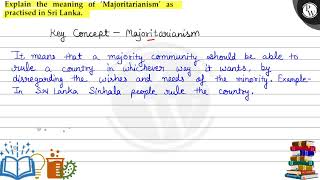 Explain the meaning of 'Majoritarianism' as
practised in Sri Lanka.
Key Concept – Majoritarianism
It means that a majority community should be able to
rule a country in whichever way it wants, by
disregarding the wishes and needs of the minority. Example-
In Sri Lanka Sinhala people rule the country.